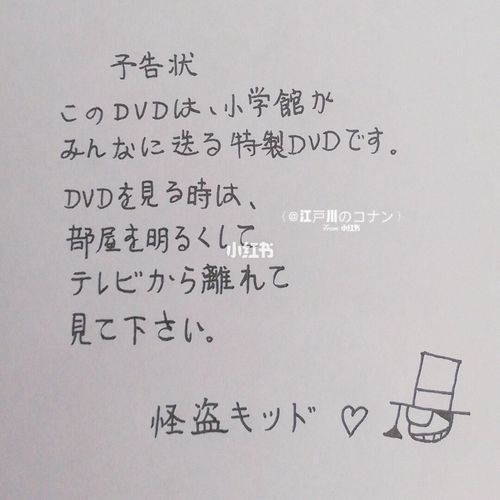 予告状
このDVDは、小学館が
みんなに送る特製DVDです。
DVDを見る時は、
(@江戸川のコナン)
From 小红书
部屋を明るくして
小红书
テレビから離れて
見て下さい。
怪盗キッド ♡